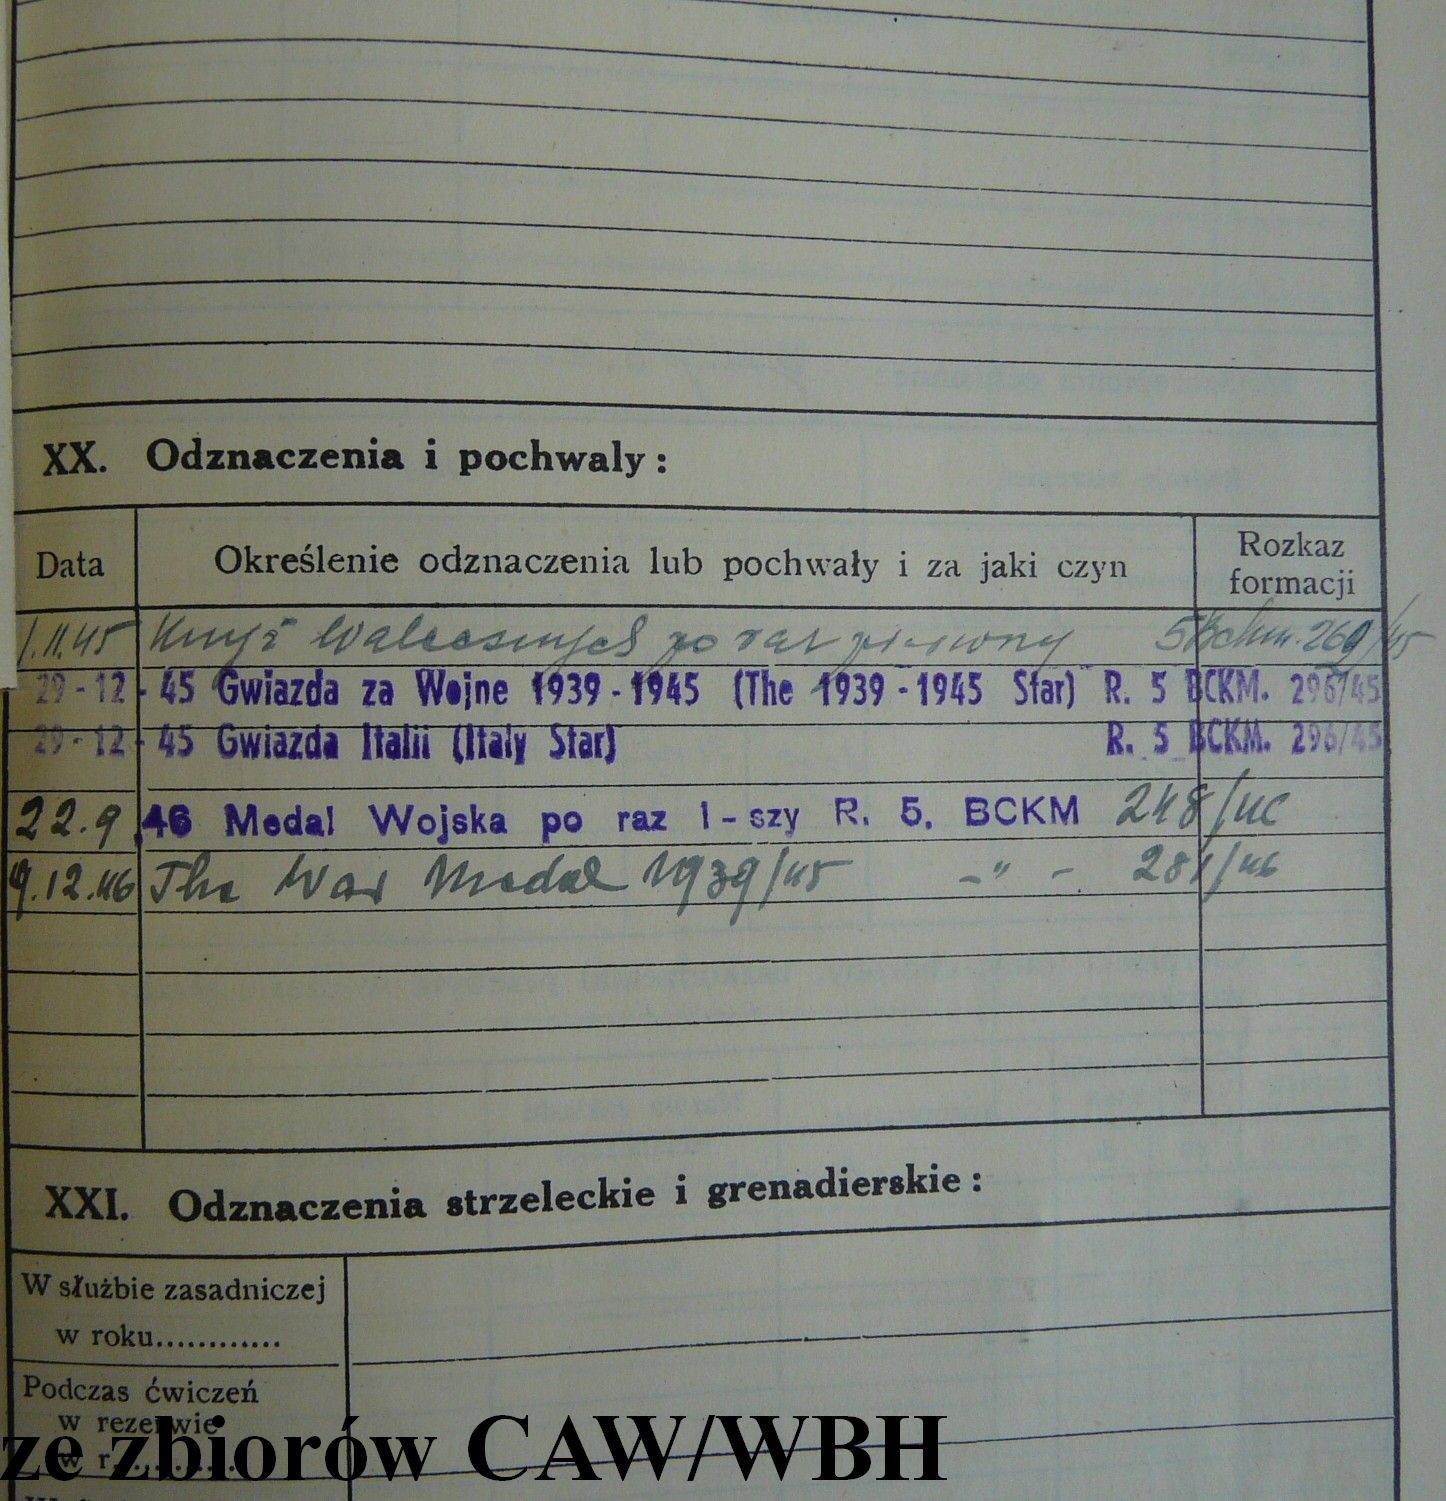 XX. Odznaczenia i pochwały:
Data Określenie odznaczenia lub pochwały i za jaki czyn Rozkaz formacji
1.11.45 Krzyż Walecznych po raz pierwszy 5 Bckm. 269/45
29-12-45 Gwiazda za Wojne 1939-1945 (The 1939-1945 Star) R. 5 BCKM. 296/45
29-12-45 Gwiazda Italii (Italy Star) R. 5 BCKM. 296/45
22.9.46 Medal Wojska po raz I-szy R. 5. BCKM 248/46
9.12.46 The War Medal 1939/45 -"- 281/46
XXI. Odznaczenia strzeleckie i grenadierskie:
W służbie zasadniczej
w roku............
Podczas ćwiczeń
w rezerwie
w r............
ze zbiorów CAW/WBH